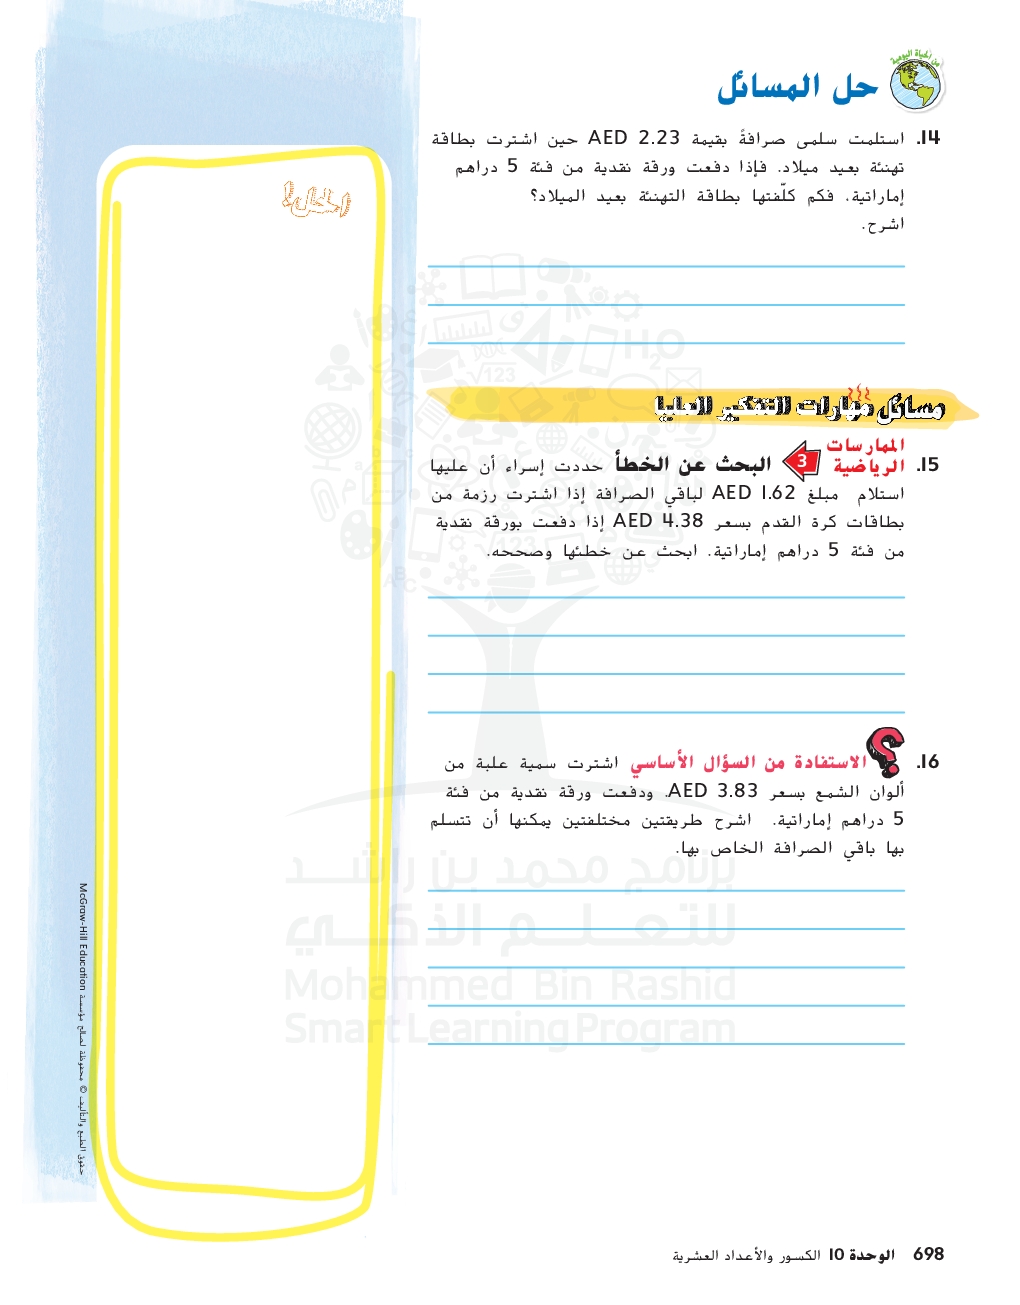 من الحياة اليومية
حل المسائل
14. استلمت سلمى صرافةً بقيمة AED 2.23 حين اشترت بطاقة
تهنئة بعيد ميلاد. فإذا دفعت ورقة نقدية من فئة 5 دراهم
إماراتية. فكم كلّفتها بطاقة التهنئة بعيد الميلاد؟
اشرح.
احل!
مسائل مهارات التفكير العليا
الممارسات
15. الرياضية 3 البحث عن الخطأ حددت إسراء أن عليها
استلام مبلغ AED 1.62 لباقي الصرافة إذا اشترت رزمة من
بطاقات كرة القدم بسعر AED 4.38 إذا دفعت بورقة نقدية
من فئة 5 دراهم إماراتية. ابحث عن خطئها وصححه.
16. الاستفادة من السؤال الأساسي اشترت سمية علبة من
ألوان الشمع بسعر AED 3.83. ودفعت ورقة نقدية من فئة
5 دراهم إماراتية. اشرح طريقتين مختلفتين يمكنها أن تتسلم
بها باقي الصرافة الخاص بها.
برنامج محمد بن راشد
للتعلم الذكي
Mohammed Bin Rashid
Smart Learning Program
حقوق الطبع والتأليف © محفوظة لصالح مؤسسة McGraw-Hill Education
698 الوحدة 10 الكسور والأعداد العشرية